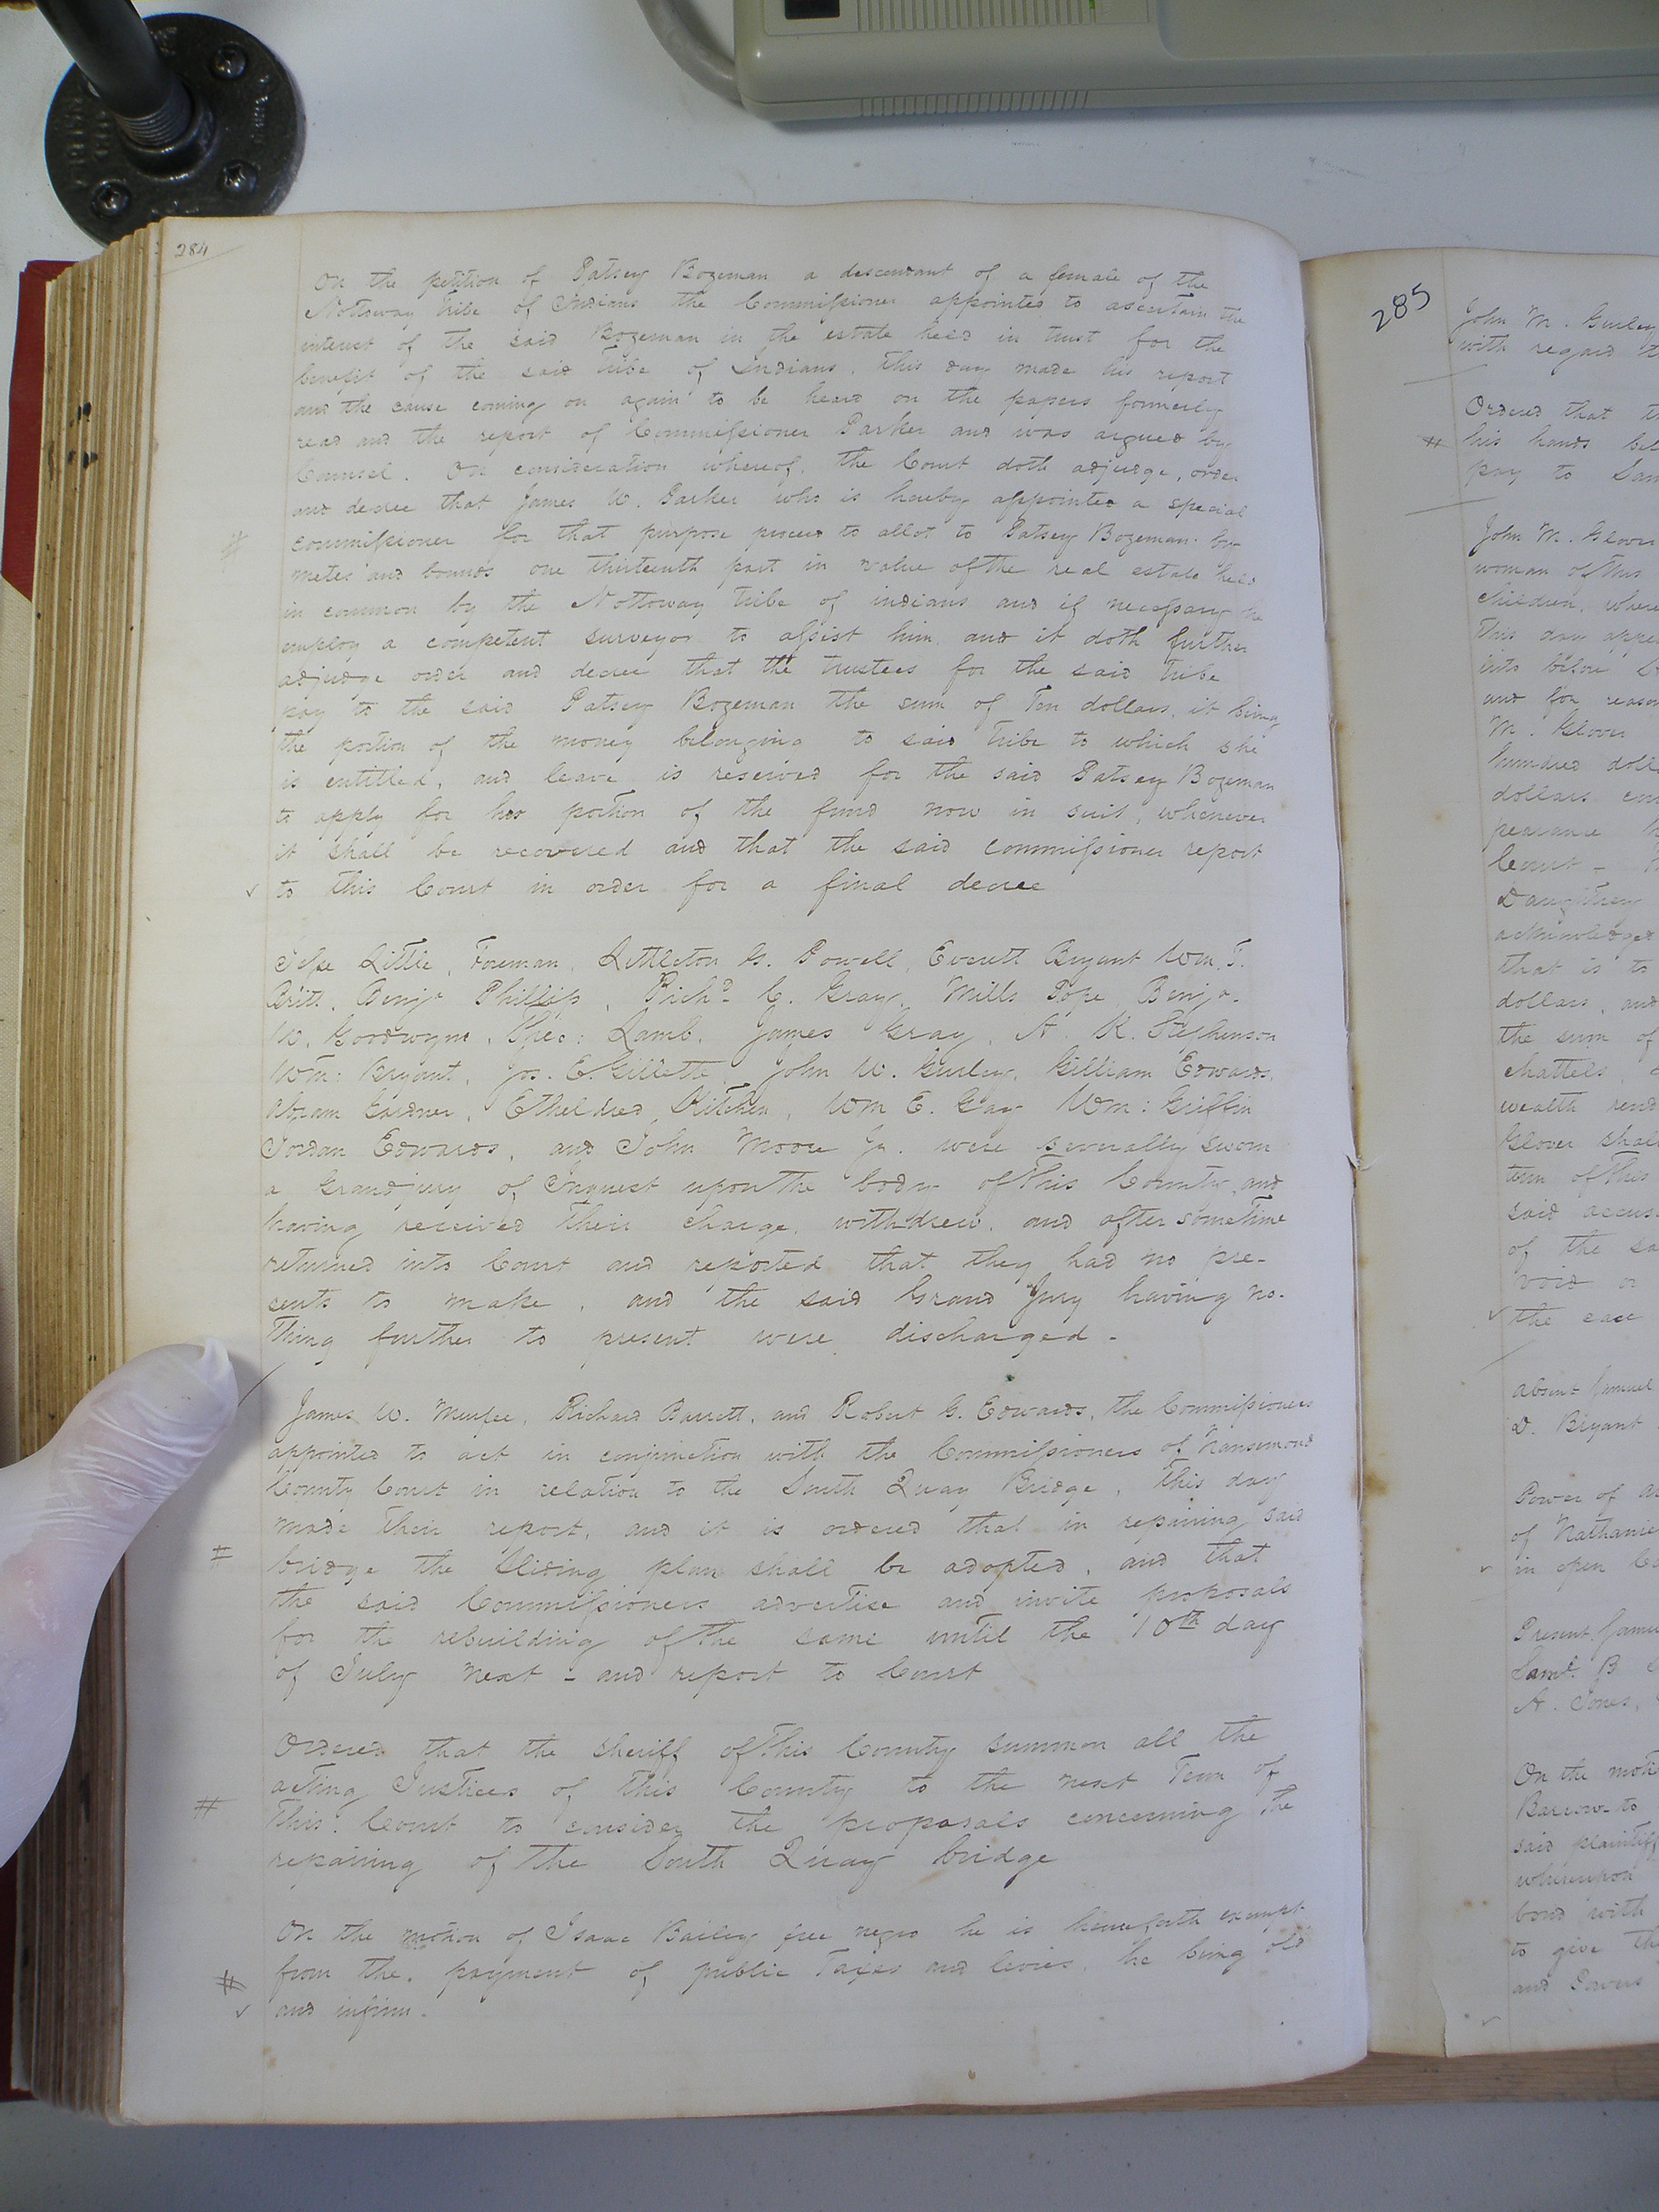 284
On the petition of Patsey Bozeman a descendant of a female of the
Nottoway tribe of Indians the Commissioner appointed to ascertain the
interest of the said Bozeman in the estate held in trust for the
benefit of the said tribe of Indians, this day made his report
and the cause coming on again to be heard on the papers formerly
read and the report of Commissioner Parker and was argued by
Counsel. On consideration whereof, the Court doth adjudge, order
and decree that James W. Parker who is hereby appointed a special
# commissioner for that purpose proceed to allot to Patsey Bozeman by
metes and bounds one thirteenth part in value of the real estate held
in common by the Nottoway tribe of indians and if necessary he
employ a competent surveyor to assist him and it doth further
adjudge order and decree that the trustees for the said tribe
pay to the said Patsey Bozeman the sum of Ten dollars, it being
the portion of the money belonging to said tribe to which she
is entitled, and leave is reserved for the said Patsey Bozeman
to apply for her portion of the fund now in suit, whenever
it shall be recovered and that the said commissioner report
✓ to this Court in order for a final decree
Jesse Little, Foreman, Littleton Powell, Everett Bryant Wm. T.
Britt, Benja Phillips, Richd. C. Gray, Mills Pope, Benja.
W. Goodwyn, Lamb, James Gray, A. K. Stephenson
Wm: Bryant, Jos. E. Gillette, John W. Gurley, Gilliam Edwards,
Abram Gardner, Etheldred Kitchen, Wm E. Gay Wm: Griffin
Jordan Edwards, and John Moore Jr. were severally sworn
a Grandjury of Inquest upon the body of this County and
having received their charge, withdrew, and after sometime
returned into Court and reported that they had no pre-
sents to make, and the said Grand Jury having no-
thing further to present were discharged -
James W. Murfee, Richard Barrett, and Robert G. Edwards, the Commissioners
appointed to act in conjunction with the Commissioners of Nansemond
County Court in relation to the South Quay Bridge, this day
made their report, and it is ordered that in repairing said
# bridge the Sliding plan shall be adopted, and that
the said Commissioners advertise and invite proposals
for the rebuilding of the same until the 10th day
of July next - and report to Court
Ordered that the sheriff of this County summon all the
acting Justices of this County to the next Term of
# this Court to consider the proposals concerning the
repairing of the South Quay bridge
On the motion of Isaac Bailey free negro he is henceforth exempt
# from the payment of public Taxes and levies, he being old
✓ and infirm.
285
John M. Gurley
with regard
Ordered that
# his hands
pay to
John M. Glover
woman of this
children, where
this day
into before
and for reason
M. Glover
hundred
dollars
pearance
Court -
Daughtrey
acknowledged
that is to
dollars, and
the sum of
chattels,
wealth
Glover
term of this
said
of the
void or
✓ the case
Absent
D. Bryant
Power of
of
✓ in open
Present
Saml. B
A. Jones,
On the
Barrow to
said plaintiff
whereupon
bond with
to give
and
✓